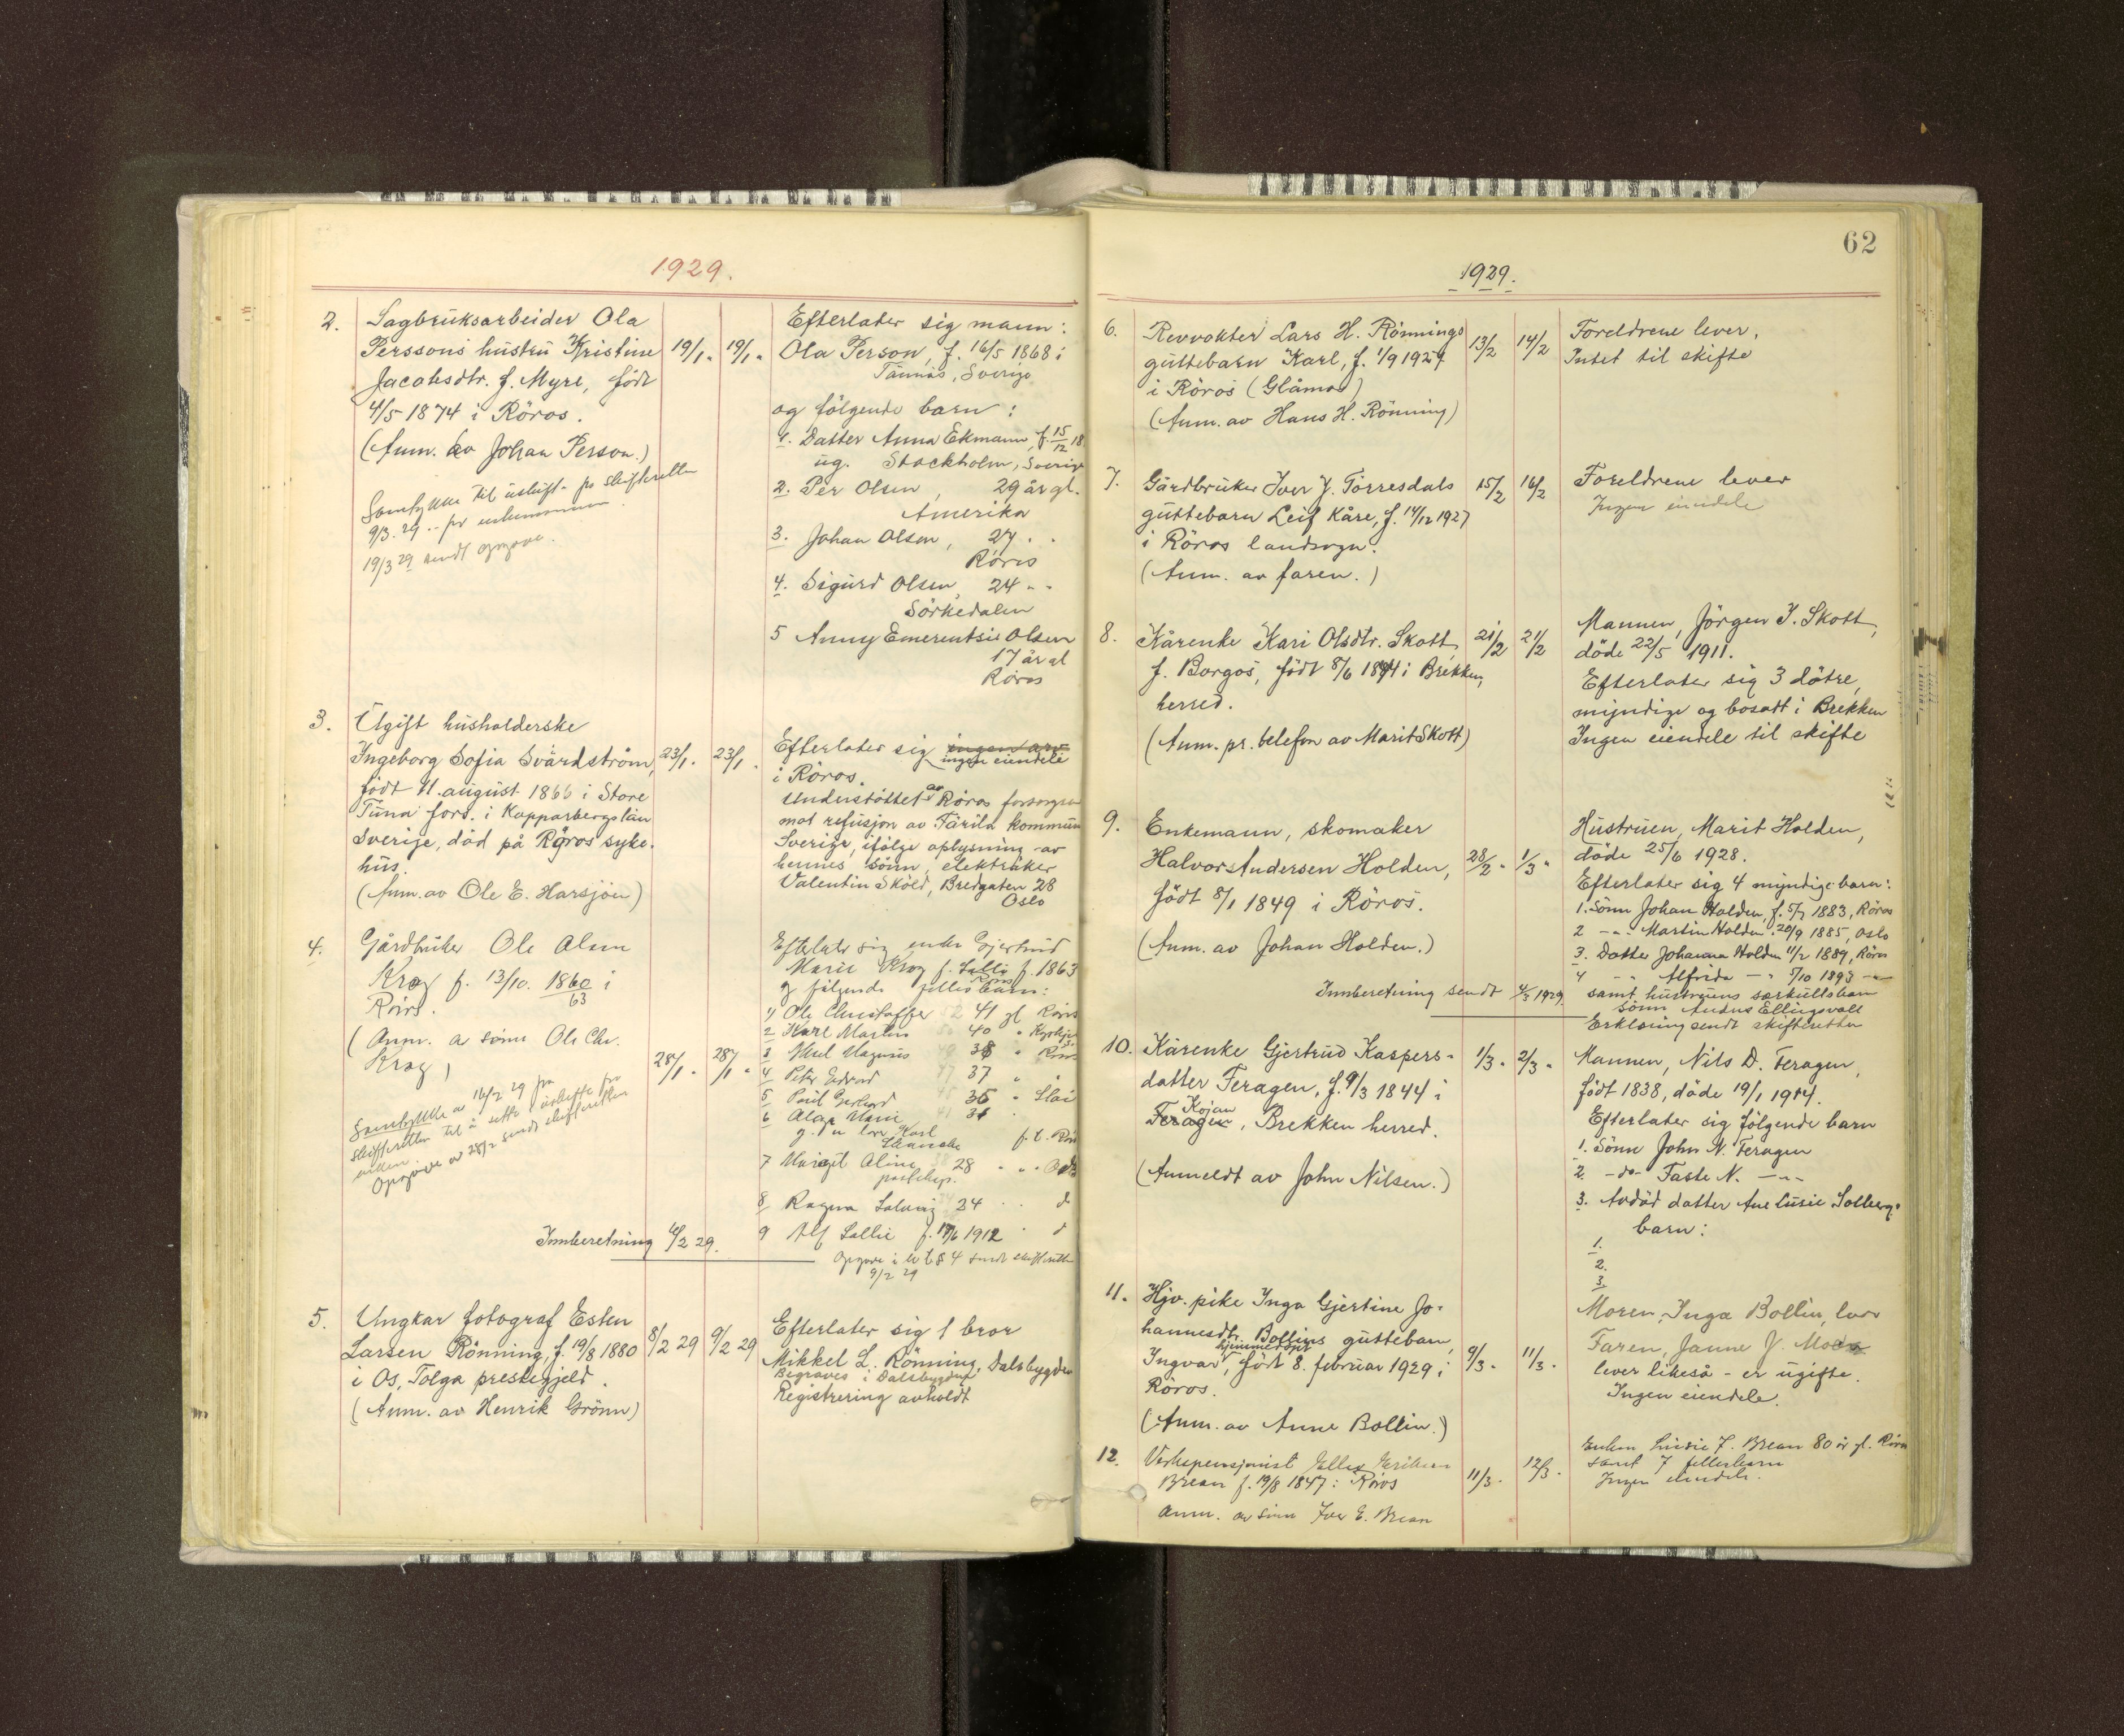 1929.
2. Sagbruksarbeider Ola
Perssons hustru Kristine 19/1. 19/1.
Jacobsdtr. f. Myre, født
4/5 1874 i Röros.
(Anm. av Johan Person.)
9/3. 29
19/3 29 sendt opgave.
Efterlater sig mann:
Ola Person, f. 16/5 1868 i
Tännäs, Sverige
og følgende barn:
1. Datter Anna Ekmann, f. 15/12 18
ug. Stockholm, Sverige
2. Per Olsen, 29 år gl.
Amerika
3. Johan Olsen, 27 . .
Röros
4. Sigurd Olsen, 24 - -
Sörkedalen
5 Anny Emerentsie Olsen
17 år gl
Röros
3. Ugift husholderske
Ingeborg Sofia Svärdström, 23/1. 23/1.
født 11. august 1866 i Store
Tuna fors. i Kopparbergs län
Sverige, död på Röros syke-
hus.
(Anm. av Ole E. Harsjöen)
Efterlater sig ingen arv
ingen eiendele
i Röros.
Understöttet av Röros forsorgs
mot refusjon av Färila kommun
Sverige, ifölge oplysning av
hennes sönn, elektriker
Valentin Sköld, Bredgaten 28
Oslo
4. Gårdbruker Ole Olsen
Krog f. 13/10. 1860 i
63
Röros.
(Anm. a sönn Ole Chr.
Krog) 28/1. 28/1.
Samtykke a 16/2 29 fra
skifteretten til å sitte i uskifte
Opgave av 28/2 sendt skifteretten
Efterlater sig enke Gjertrud
Marie Krog f. Sollie f. 1863
Röros
og følgende felles barn:
1) Ole Christoffer 41 gl Röros
2 Karl Martin 40 "
3 Magnus 38 " Röros
4 Peter Edvard 37 " "
5 Paul Gerhard 36 "
6 Marie 31
7 Margit Aline 28 " "
8 Ragna Solveig 24 . . d
9 Alf Sollie f. 17/6 1912 . d
Innberetning 4/2 29.
9/2 29
5. Ungkar fotograf Esten
Larsen Rönning, f. 19/8 1880 8/2 29 9/2 29
i Os, Tolga prestegjeld.
(Anm. av Henrik Grönn)
Efterlater sig 1 bror
Mikkel L. Rönning, Dalsbygden
Begraves i Dalsbygden
Registrering avholdt
62
1929.
6. Revvokter Lars H. Rönnings
guttebarn Karl, f. 1/9 1927 13/2 14/2
i Röros (Glåmos)
(Anm. av Hans H. Rönning)
Foreldrene lever.
Intet til skifte
7. Gårdbruker Iver J. Torresdals 15/2 16/2
guttebarn Leif Kåre, f. 14/12 1927
i Röros landsogn.
(Anm. av faren.)
Foreldrene lever
Ingen eiendele
8. Kårenke Kari Olsdtr. Skott 21/2 21/2
f. Borgos, født 8/6 1844 i Brekken
herred.
(Anm. pr. telefon av Marit Skott)
Mannen, Jörgen J. Skott,
döde 22/5 1911.
Efterlater sig 3 dötre,
myndige og bosatt i Brekken
Ingen eiendele til skifte
9. Enkemann, skomaker
Halvor Andersen Holden, 28/2. 1/3.
født 8/1 1849 i Röros.
(Anm. av Johan Holden.)
Hustruen, Marit Holden,
döde 25/6 1928.
Efterlater sig 4 myndige barn:
1. Sönn Johan Holden, f. 5/7 1883, Röros
2 - " - Martin Holden 20/9 1885, Oslo
3. Datter Johanna Holden 11/2 1889, Röros
4 - " - Alfrida - " - 5/10 1893 - " -
samt hustruens særkullsbarn
sönn Anders Ellingsvoll
Innberetning sendt 4/3 1929.
Erklæring sendt skifteretten
10. Kårenke Gjertrud Kaspers- 1/3. 2/3.
datter Feragen, f. 9/3 1844 i
Kojan
Feragen, Brekken herred.
(Anmeldt av John Nilsen.)
Mannen, Nils D. Feragen,
født 1838, döde 19/1 1914.
Efterlater sig følgende barn
1. Sönn John N. Feragen
2. - do - Faste N. - " -
3. Avdöd datter Ane Lusie Solbergs
barn:
1.
2.
3.
11. Hjv. pike Inga Gjertine Jo-
hannesdtr. Bollins guttebarn,
hjemmedöpt
Ingvar, født 8. februar 1929 i 9/3. 11/3.
Röros.
(Anm. av Anne Bollin.)
Moren, Inga Bollin, lever
Faren, Janne J. Moen
lever likeså - er ugifte.
Ingen eiendele.
12. Verkspensjonist Elling Eriksen
Brean f. 19/8 1847 i Röros 11/3. 12/3.
Anm. av sönn Iver E. Brean
Enken Lusie J. Brean 80 år gl. Röros
samt 7 fellesbarn
Ingen eiendele.